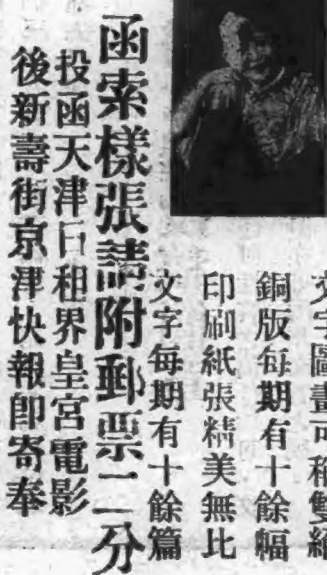 文字圖畫可稱雙絕
銅版每期有十餘幅
印刷紙張精美無比
文字每期有十餘篇
函索樣張請附郵票二分
投函天津日租界皇宮電影
後新壽街京津快報卽寄奉